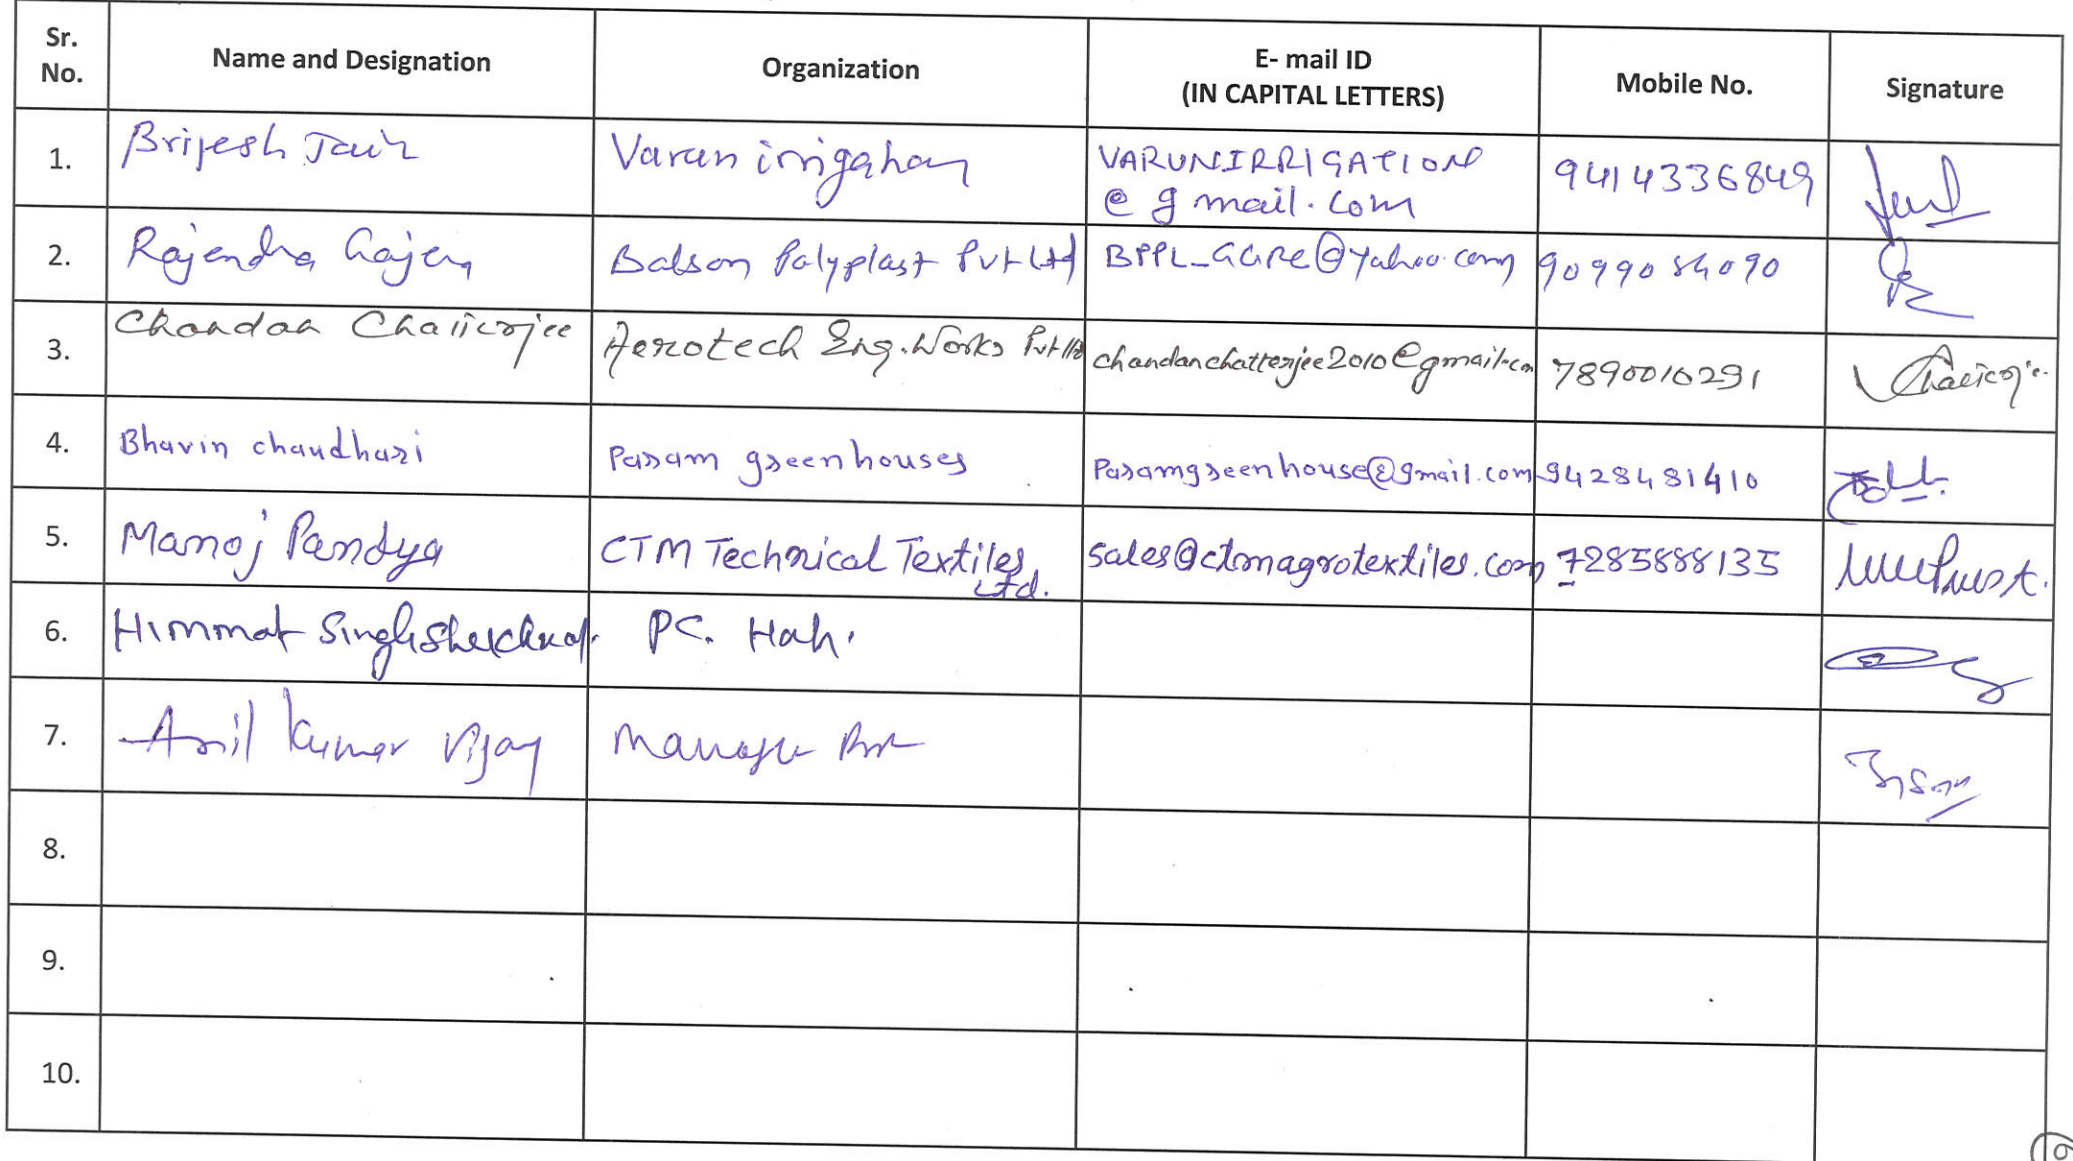 Sr. No. Name and Designation Organization E- mail ID (IN CAPITAL LETTERS) Mobile No. Signature
1. Brijesh Jain Varun irrigation VARUNIRRIGATION @gmail.com 9414336849
2. Rajendra Gajera Balson Polyplast Pvt Ltd @yahoo.com
3. Chandan Chatterjee Aerotech Eng. Works Pvt Ltd chandanchatterjee2010@gmail.com 7890010291
4. Bhavin chaudhari Param greenhouses Paramgreenhouse@gmail.com 9428481410
5. Manoj Pandya CTM Technical Textiles Ltd. sales@ctmagrotextiles.com 7285888135
6. Himmat Singh PC.
7. Anil Kumar Vijay Manager
8.
9.
10.